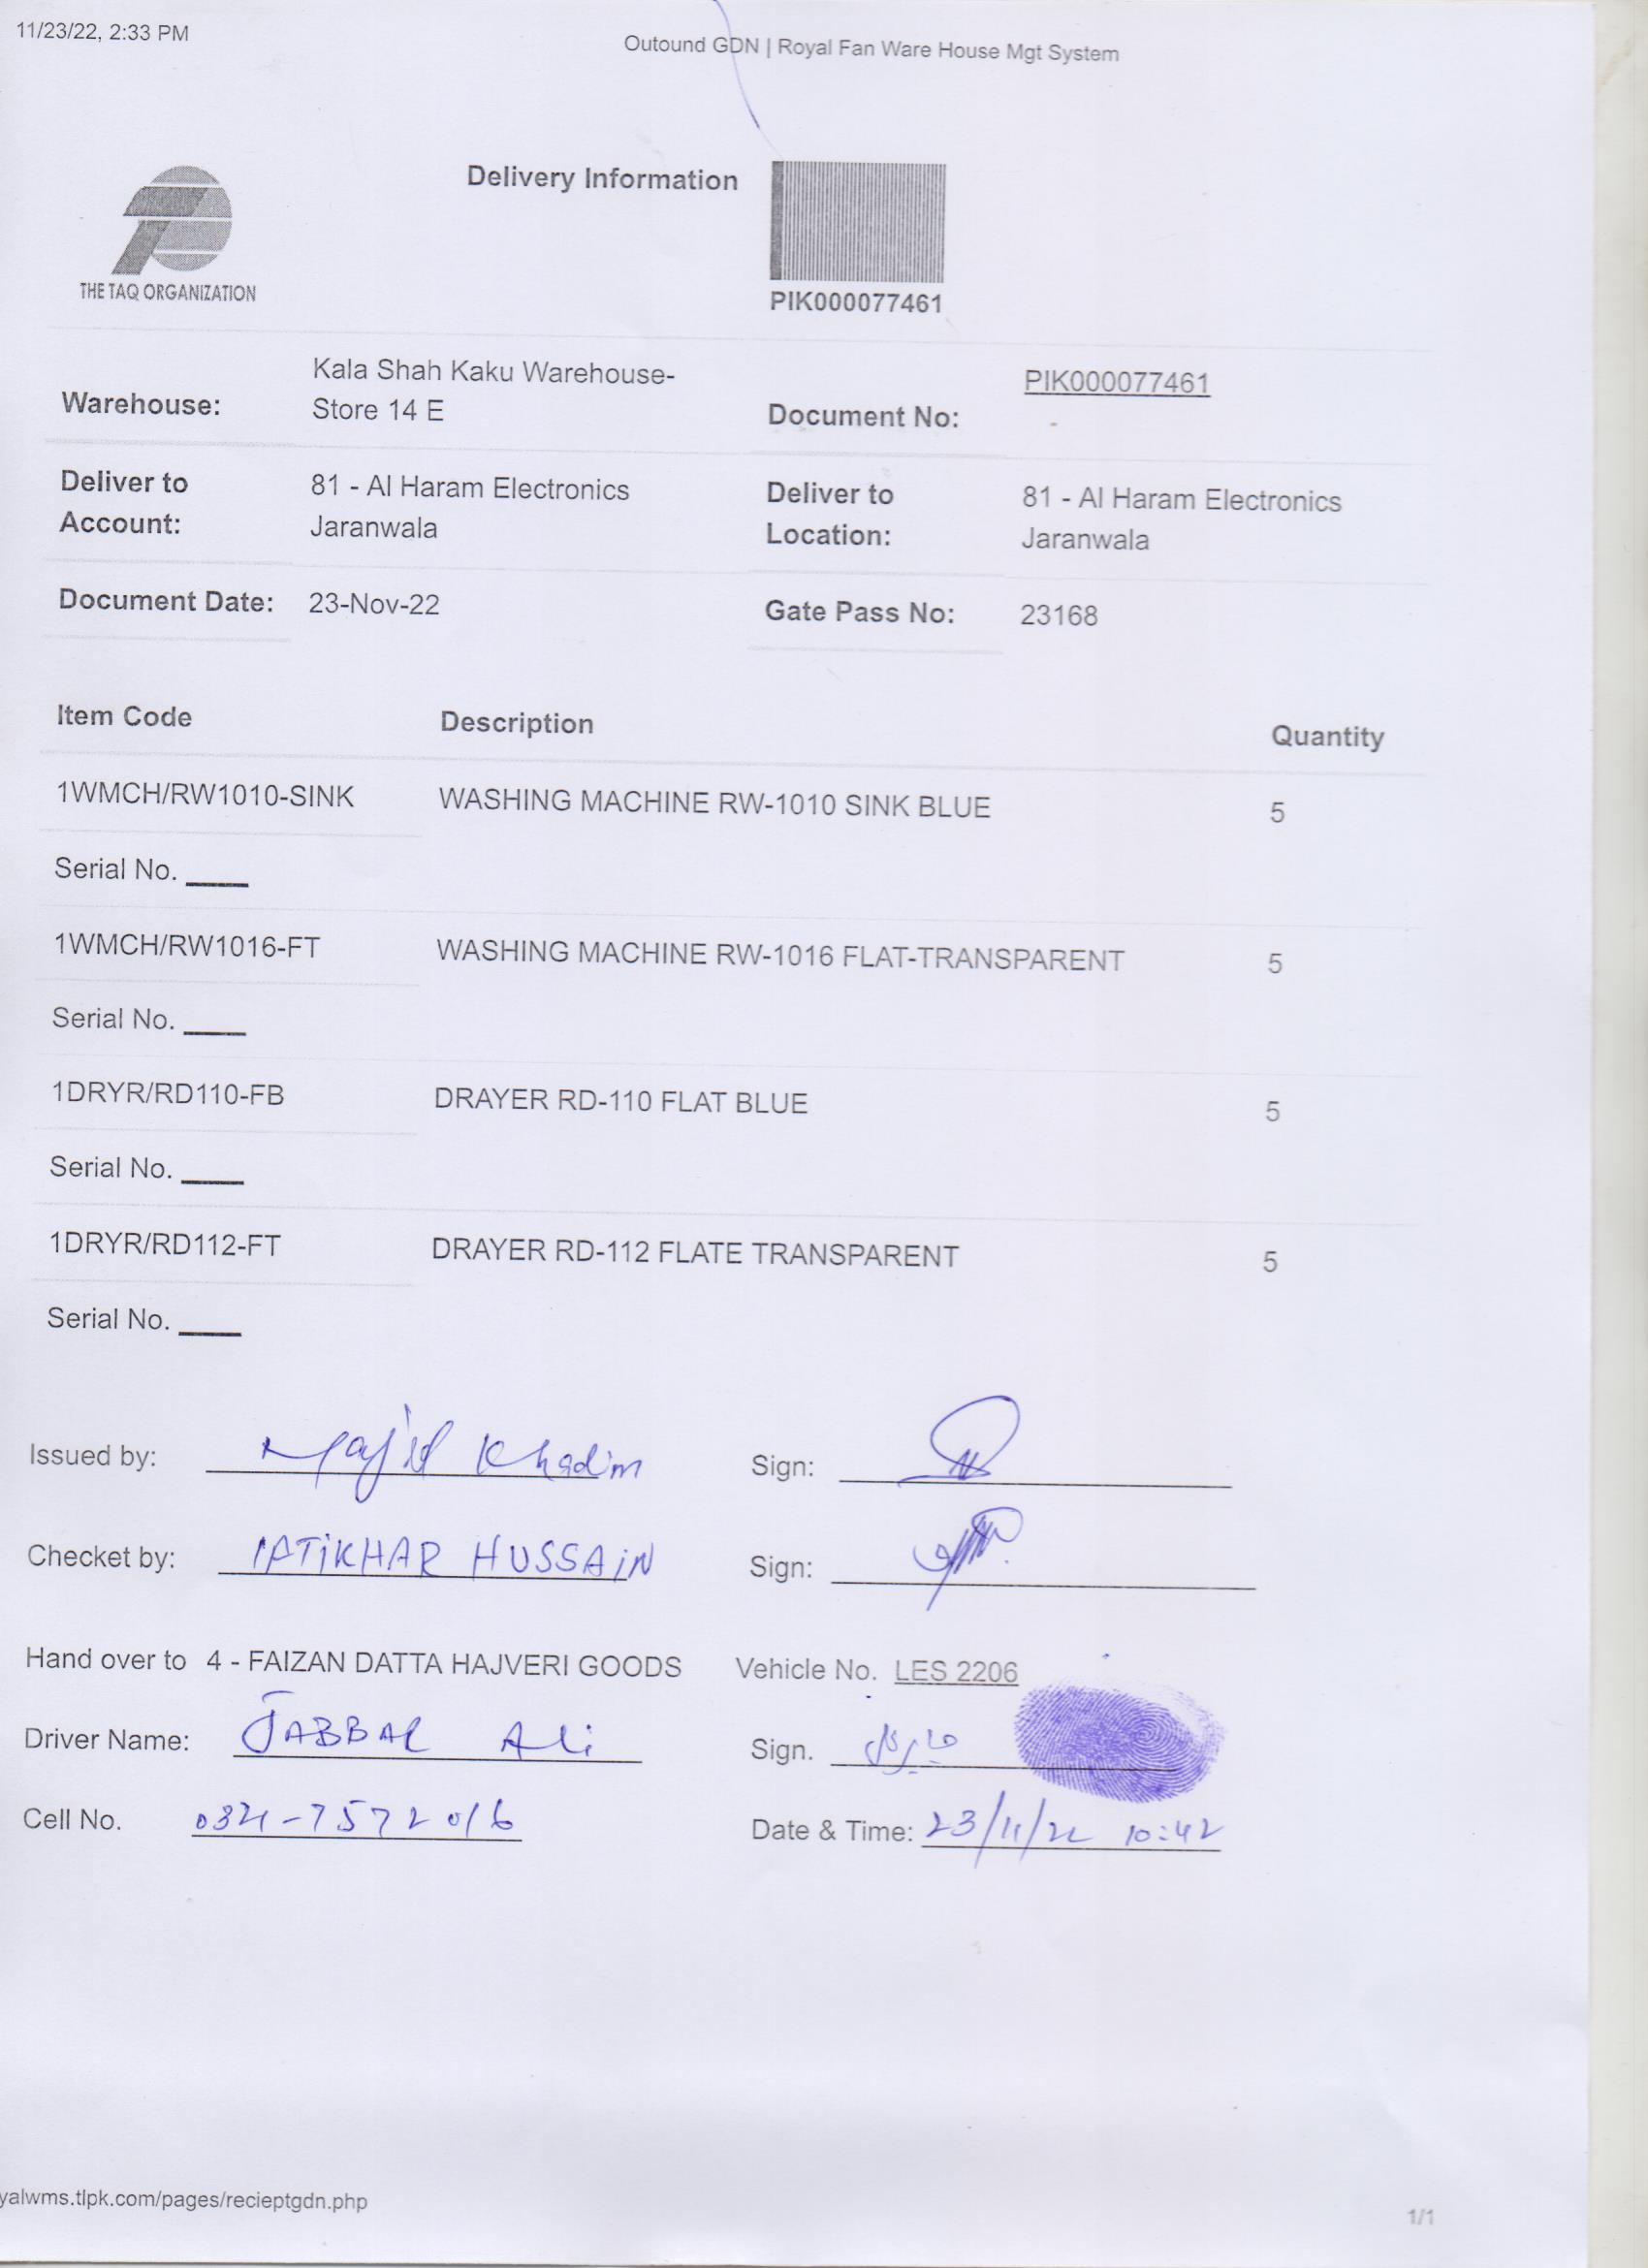 11/23/22, 2:33 PM
Outound GDN | Royal Fan Ware House Mgt System
THE TAQ ORGANIZATION
Delivery Information
PIK000077461
Warehouse: Kala Shah Kaku Warehouse-
Store 14 E
Document No: PIK000077461
Deliver to Account: 81 - Al Haram Electronics
Jaranwala
Deliver to Location: 81 - Al Haram Electronics
Jaranwala
Document Date: 23-Nov-22
Gate Pass No: 23168
Item Code Description Quantity
1WMCH/RW1010-SINK WASHING MACHINE RW-1010 SINK BLUE 5
Serial No. ____
1WMCH/RW1016-FT WASHING MACHINE RW-1016 FLAT-TRANSPARENT 5
Serial No. ____
1DRYR/RD110-FB DRAYER RD-110 FLAT BLUE 5
Serial No. ____
1DRYR/RD112-FT DRAYER RD-112 FLATE TRANSPARENT 5
Serial No. ____
Issued by: Majid Khadim Sign:
Checket by: IFTIKHAR HUSSAIN Sign:
Hand over to 4 - FAIZAN DATTA HAJVERI GOODS Vehicle No. LES 2206
Driver Name: JABBAR Ali Sign.
Cell No. 0321-7572016 Date & Time: 23/11/22 10:42
yalwms.tlpk.com/pages/recieptgdn.php
1/1